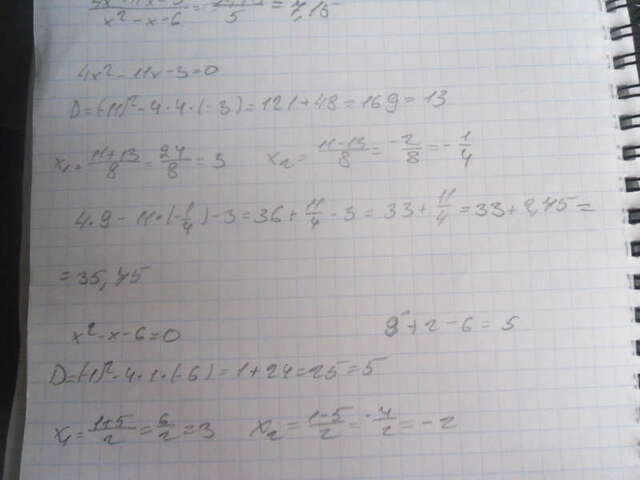 x² - x - 6 5 = 7,15
4x² - 11x - 3 = 0
D = (-11)² - 4 · 4 · (-3) = 121 + 48 = 169 = 13
x₁ = 11+13/8 = 24/8 = 3 x₂ = 11-13/8 = -2/8 = -1/4
4 · 9 - 11 · (-1/4) - 3 = 36 + 11/4 - 3 = 33 + 11/4 = 33 + 2,45 =
= 35,45
x² - x - 6 = 0 9 + 2 - 6 = 5
D = (-1)² - 4 · 1 · (-6) = 1 + 24 = 25 = 5
x₁ = 1+5/2 = 6/2 = 3 x₂ = 1-5/2 = -4/2 = -2